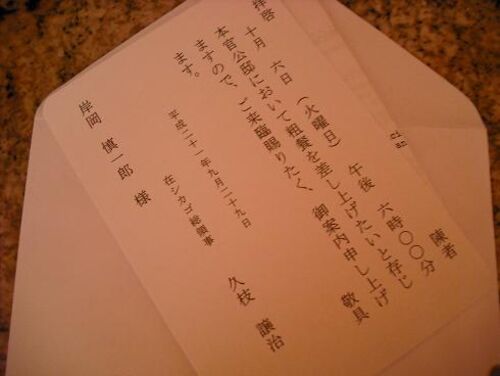 拝啓 陳者
十月 六日 (火曜日) 午後 六時〇〇分
本官公邸において粗餐を差し上げたいと存じ
ますので、ご来臨賜りたく、御案内申し上げ
ます。 敬具
平成二十一年九月二十九日
在シカゴ総領事
久枝 譲治
岸岡 慎一郎 様